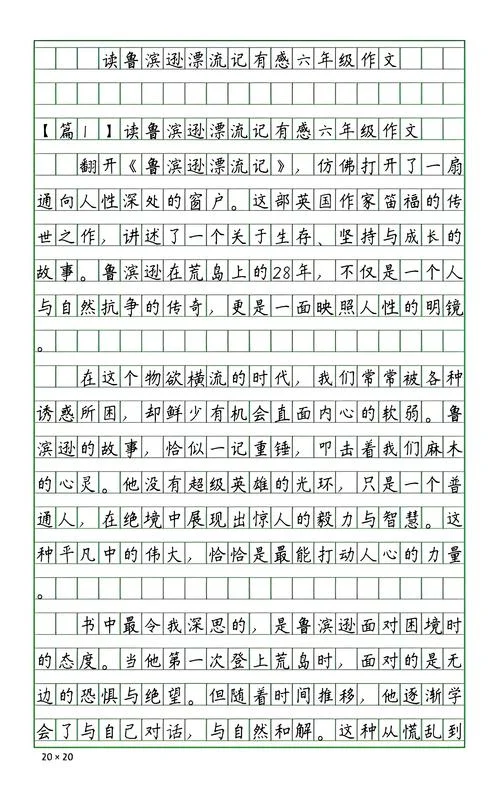 读鲁滨逊漂流记有感六年级作文
【篇1】读鲁滨逊漂流记有感六年级作文
翻开《鲁滨逊漂流记》，仿佛打开了一扇
通向人性深处的窗户。这部英国作家笛福的传
世之作，讲述了一个关于生存、坚持与成长的
故事。鲁滨逊在荒岛上的28年，不仅是一个人
与自然抗争的传奇，更是一面映照人性的明镜
。
在这个物欲横流的时代，我们常常被各种
诱惑所困，却鲜少有机会直面内心的软弱。鲁
滨逊的故事，恰似一记重锤，叩击着我们麻木
的心灵。他没有超级英雄的光环，只是一个普
通人，在绝境中展现出惊人的毅力与智慧。这
种平凡中的伟大，恰恰是最能打动人心的力量
。
书中最令我深思的，是鲁滨逊面对困境时
的态度。当他第一次登上荒岛时，面对的是无
边的恐惧与绝望。但随着时间推移，他逐渐学
会了与自己对话，与自然和解。这种从慌乱到
20×20